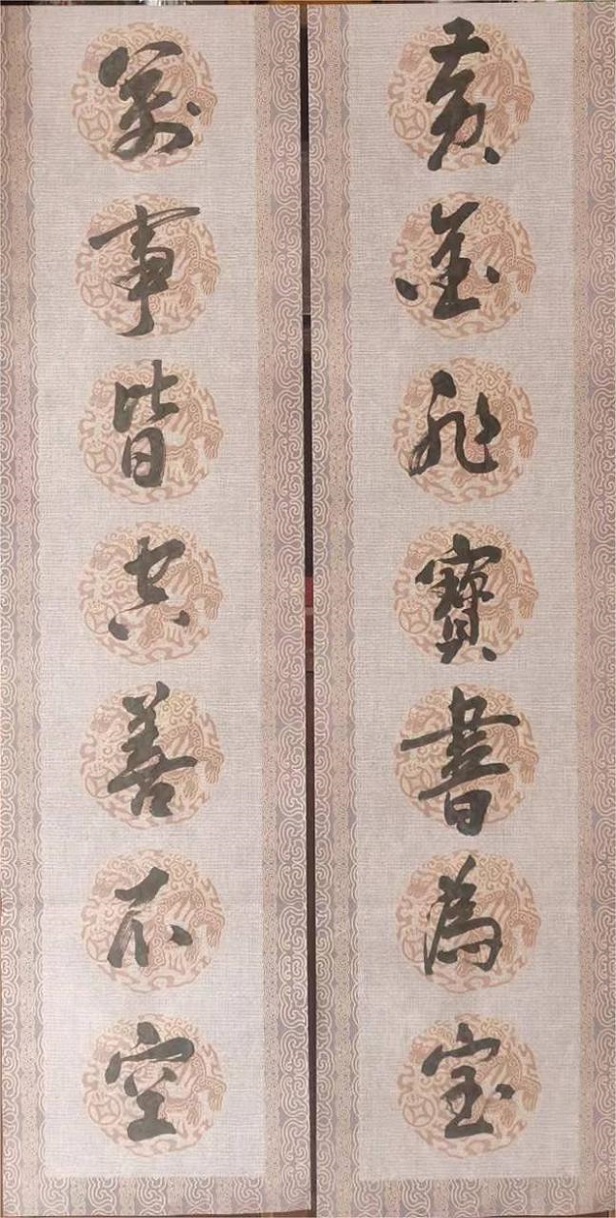 黄金非寶書為宝
萬事皆空善不空